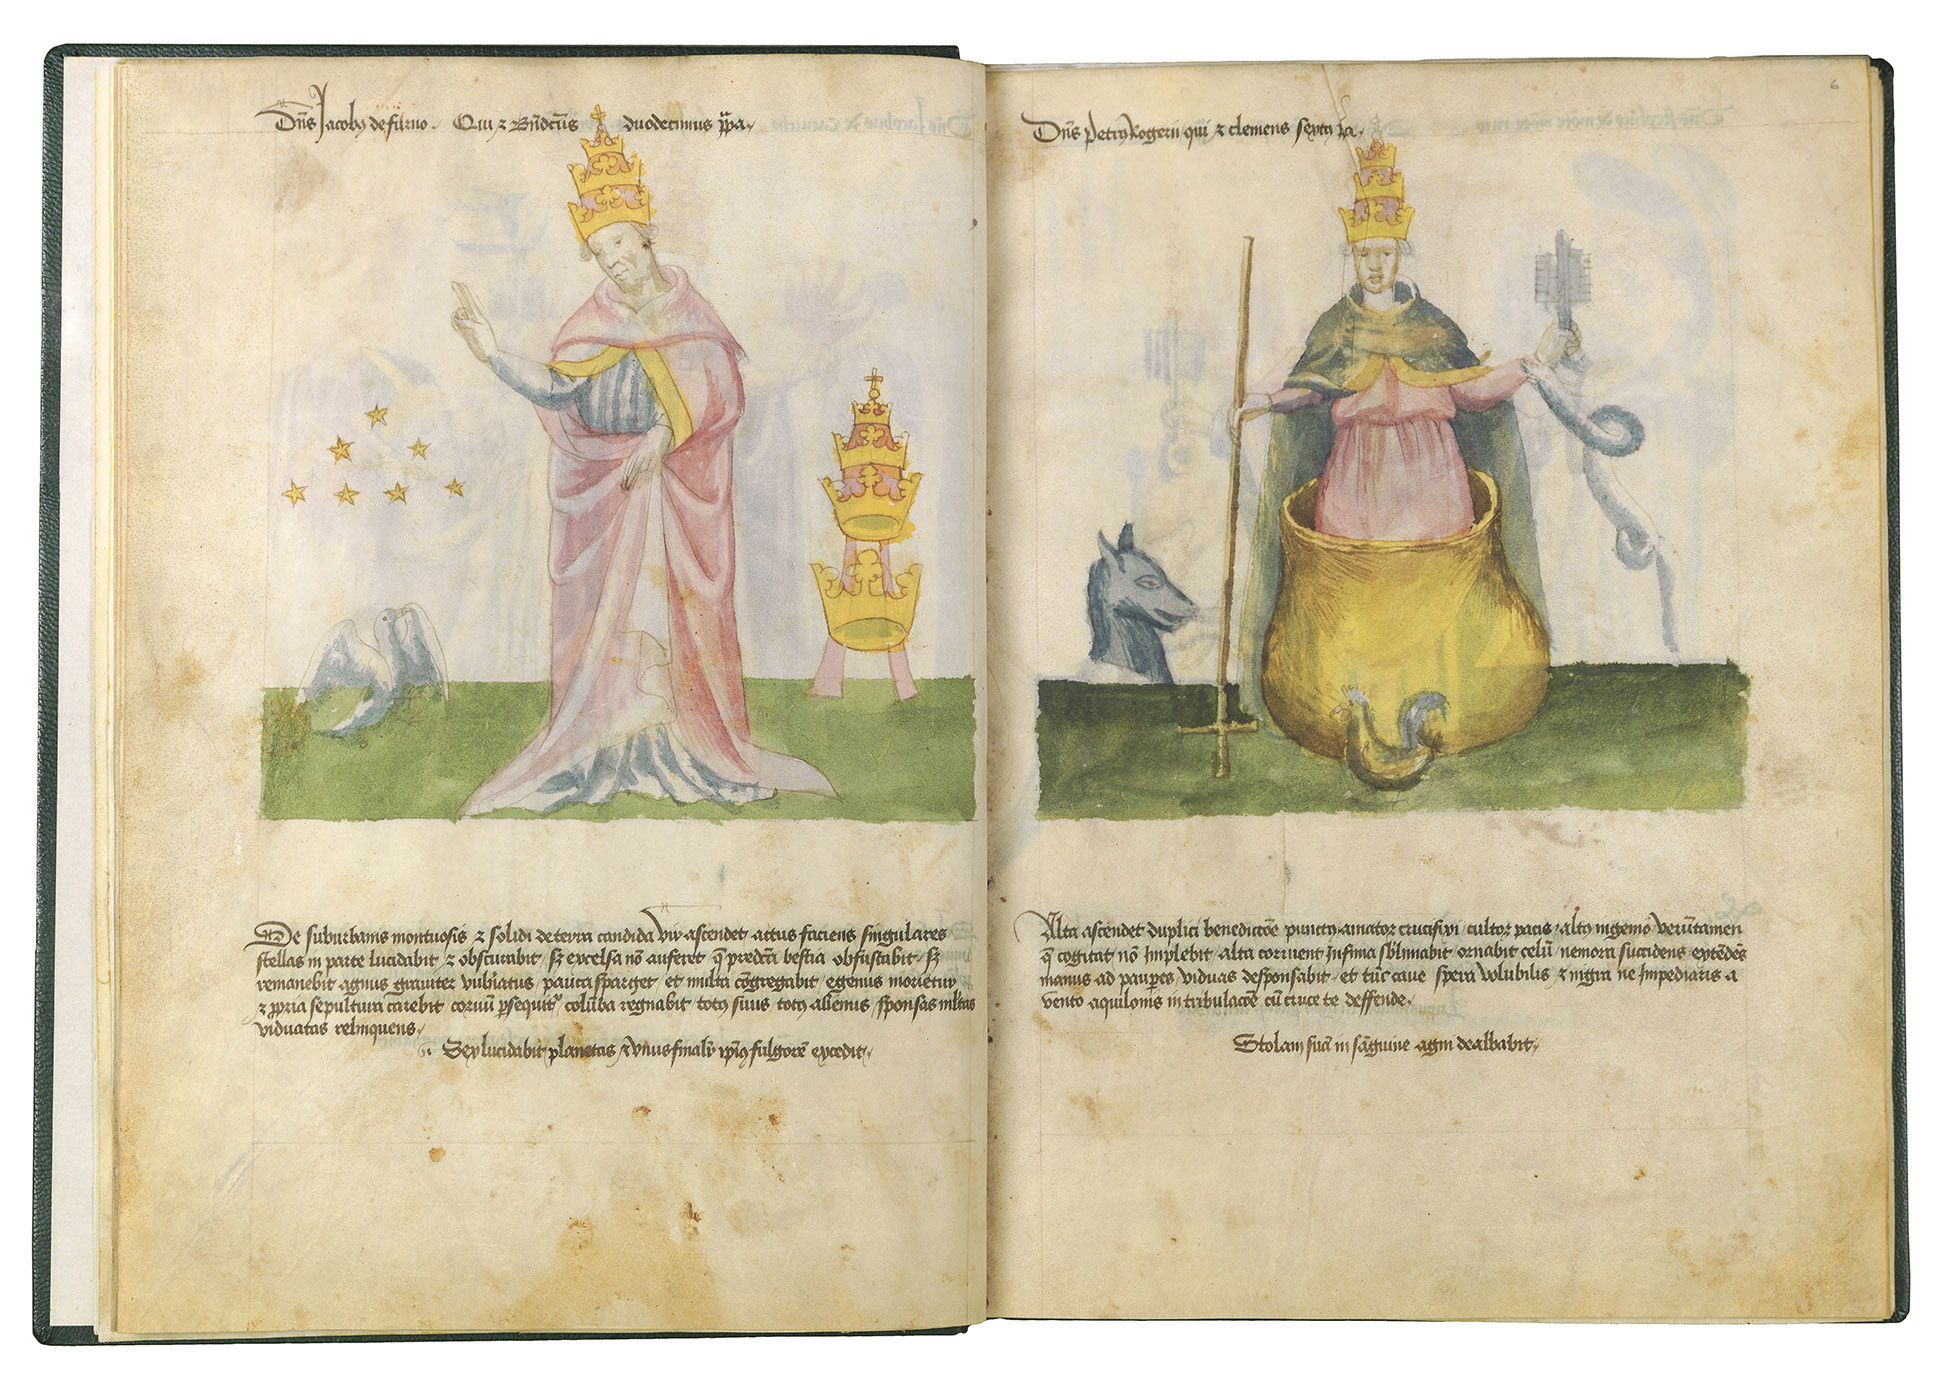 Dn̄s Jacobꝯ de furno. Qui ⁊ Bn̄dictus duodecimus pp̄a
De suburbanis montuosis ⁊ solidi de terra candida vir ascendet actus faciens singulares
stellas in parte lucidabit ⁊ obscurabit / sꝫ excelsa nō auferet q̄ predc̄ā bestia obfuscabit / sꝫ
remanebit agnus graviter vulneratus / pauca sparget / et multa cōgregabit / egenus morietur
⁊ ꝓpria sepultura carebit corvū ꝑsequit᷑ / colūba regnabit totꝯ suus totꝯ alienus / sponsas multas
viduatas relinquens
6. Sex lucidabit planetas ⁊ unus finalr̄ ip̄ius fulgorē excedit
6
Dn̄s Petrꝯ Rogerii qui ⁊ clemens sextꝯ pa
Alta ascendet duplici benedictōe punctꝯ / amator crucifixi / cultor pacis / altꝯ ingenio / verūtamen
q̄ cogitat nō implebit / alta corruent infima sublimabit / ornabit celū / nemora succidens / extēdēs
manus ad pauꝑes / viduas desponsabit / et tūc cave spera volubilis / ⁊ nigra ne impediaris a
vento aquilonis in tribulacōe cū cruce te deffende
Stolam suā in sāguine agni dealbabit